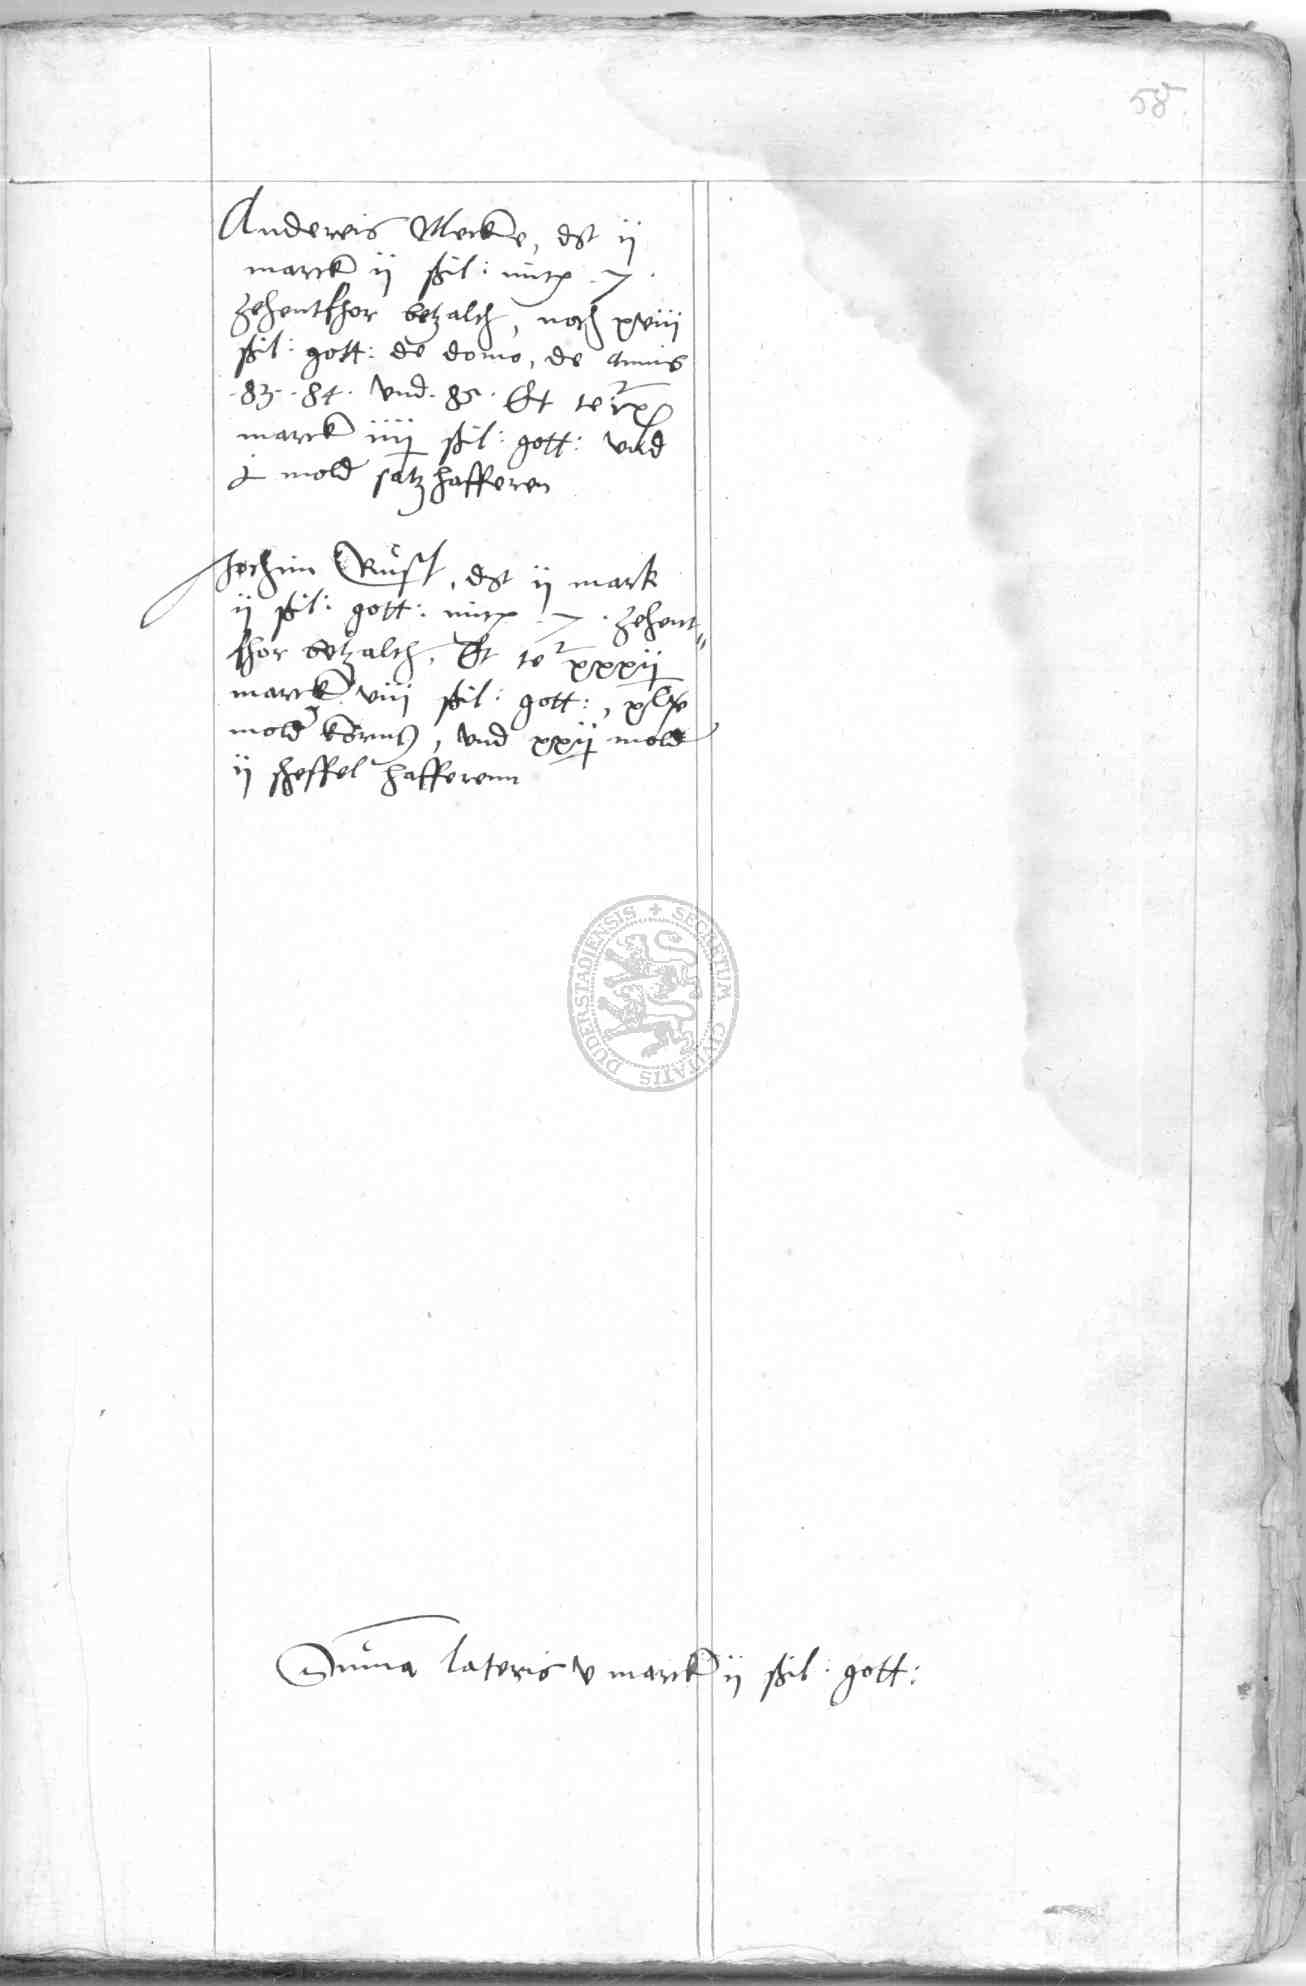 58
Andereis Mecke, dt ij
marck ij ßil: mitx 7.
Zehentthor betzalth, noch xviij
ßil: gott: de domo, de annis
.83. .84. vnd .85. Et te[r] ix
marck iiij ßil: gott: vnd
j mold satzhafferen
Jochim Rust, dt ij mark
ij ßil: gott: mitx 7. Zehent"
thor betzalth, Et te[r] xxxij
marck viij ßil: gott:,
mold korns, vnd xxij mold
ij scheffel hafferenn
DUDERSTADIENSIS + SECRETUM CIVITATIS
Summa lateris v marck ij ßil: gott: